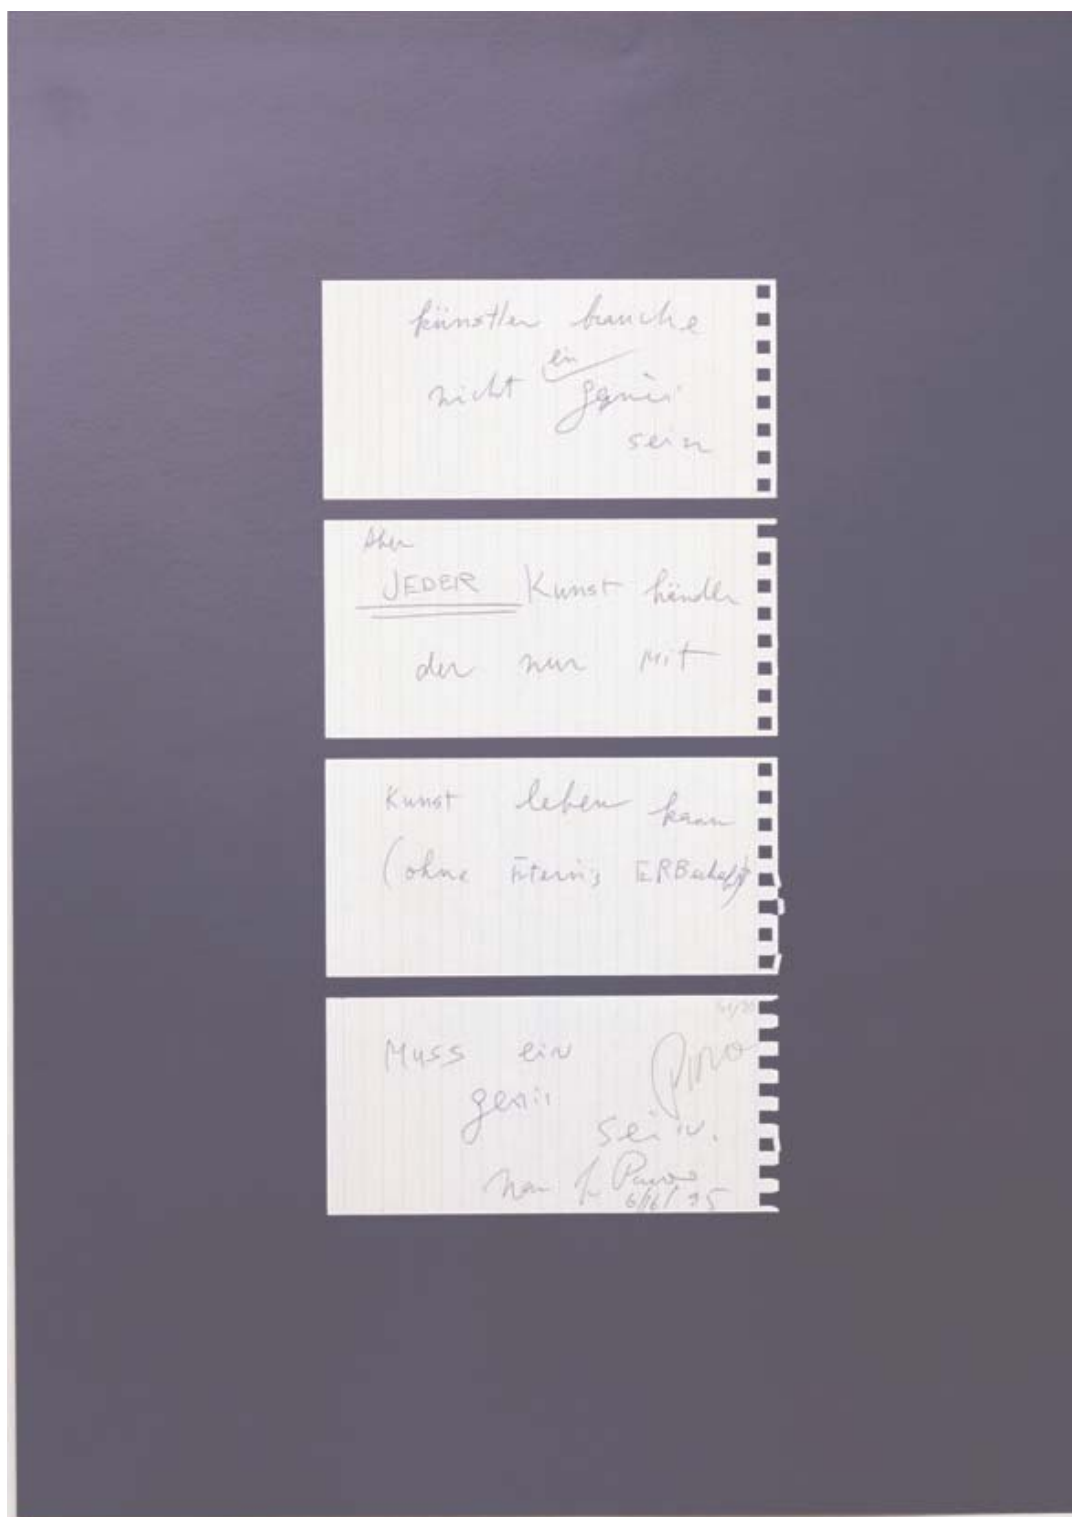 künstler brauche
nicht ein genis
sein
Aber
JEDER Kunst händler
der nur mit
Kunst leben kann
(ohne ERBschaft)
Muss ein
genii
sein.
6/16/95